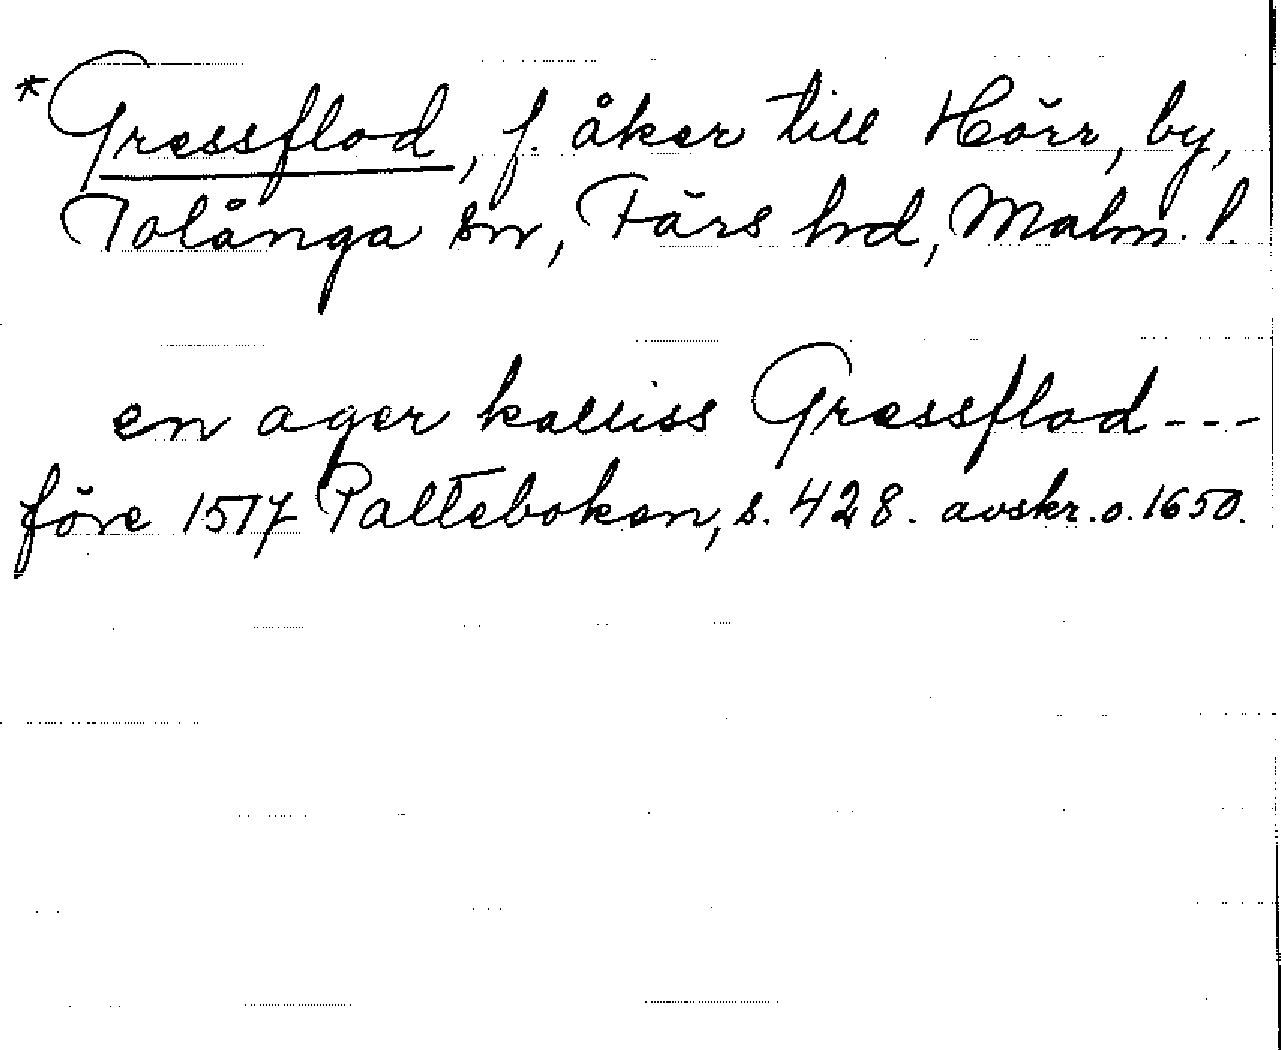 *Gressflod, f. åker till Hörr, by,
Tolånga sn, Färs hd, Malm. l.
en ager kalliss Gressflod---
före 1517 Palteboken, s. 428. avskr. o. 1650.